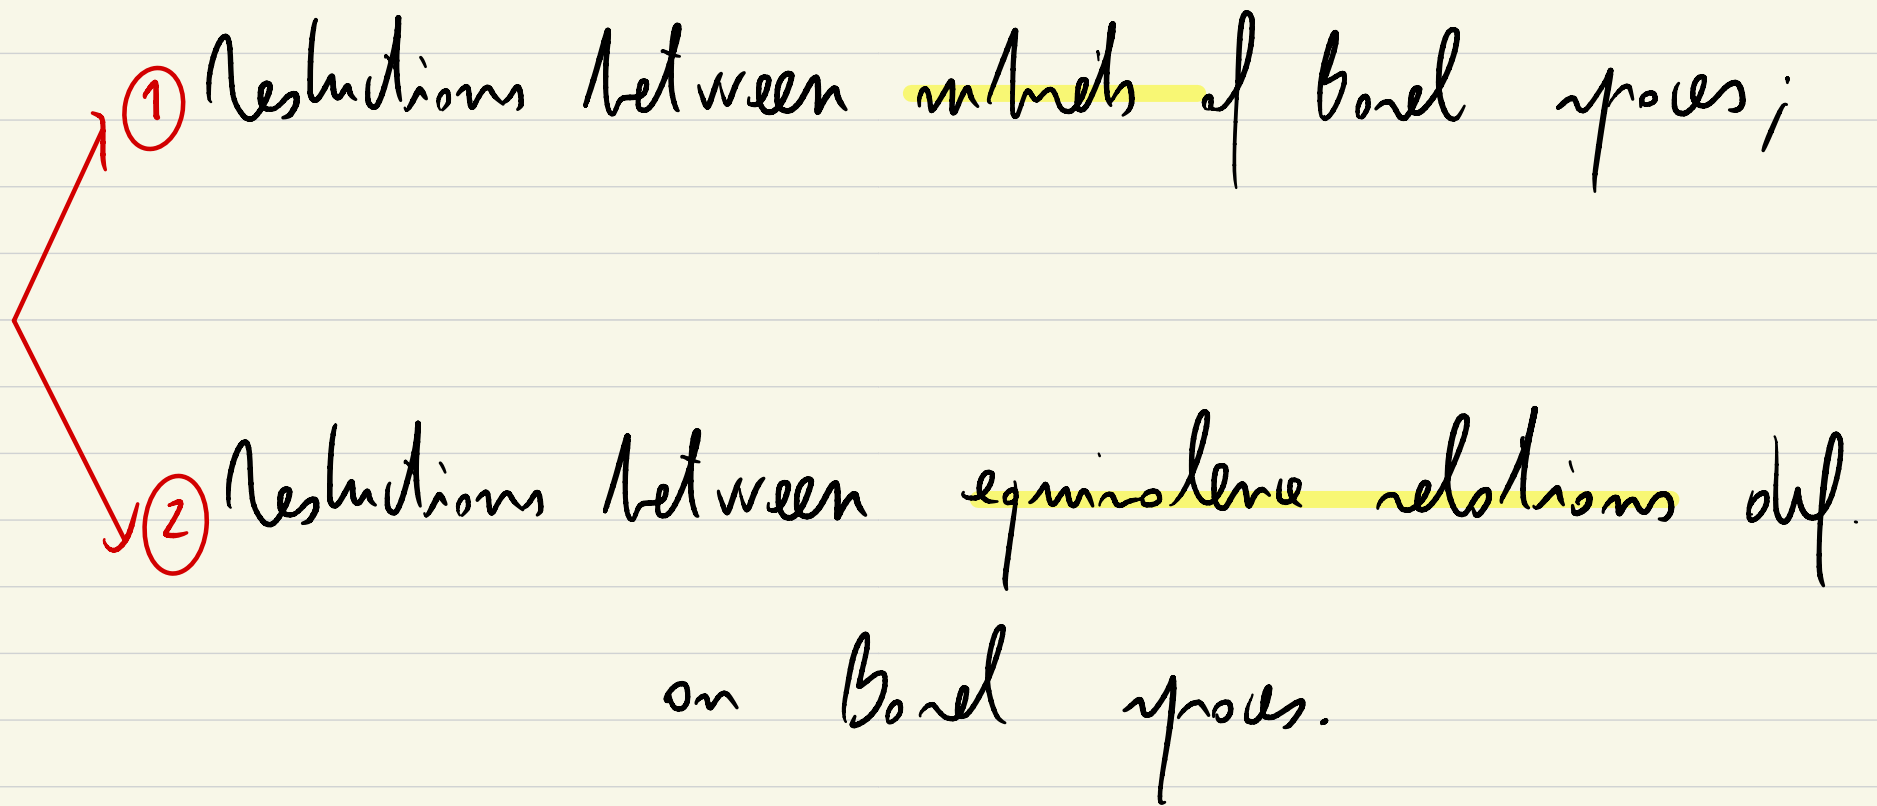 ① Reductions between subsets of Borel spaces;
② Reductions between equivalence relations def.
on Borel spaces.